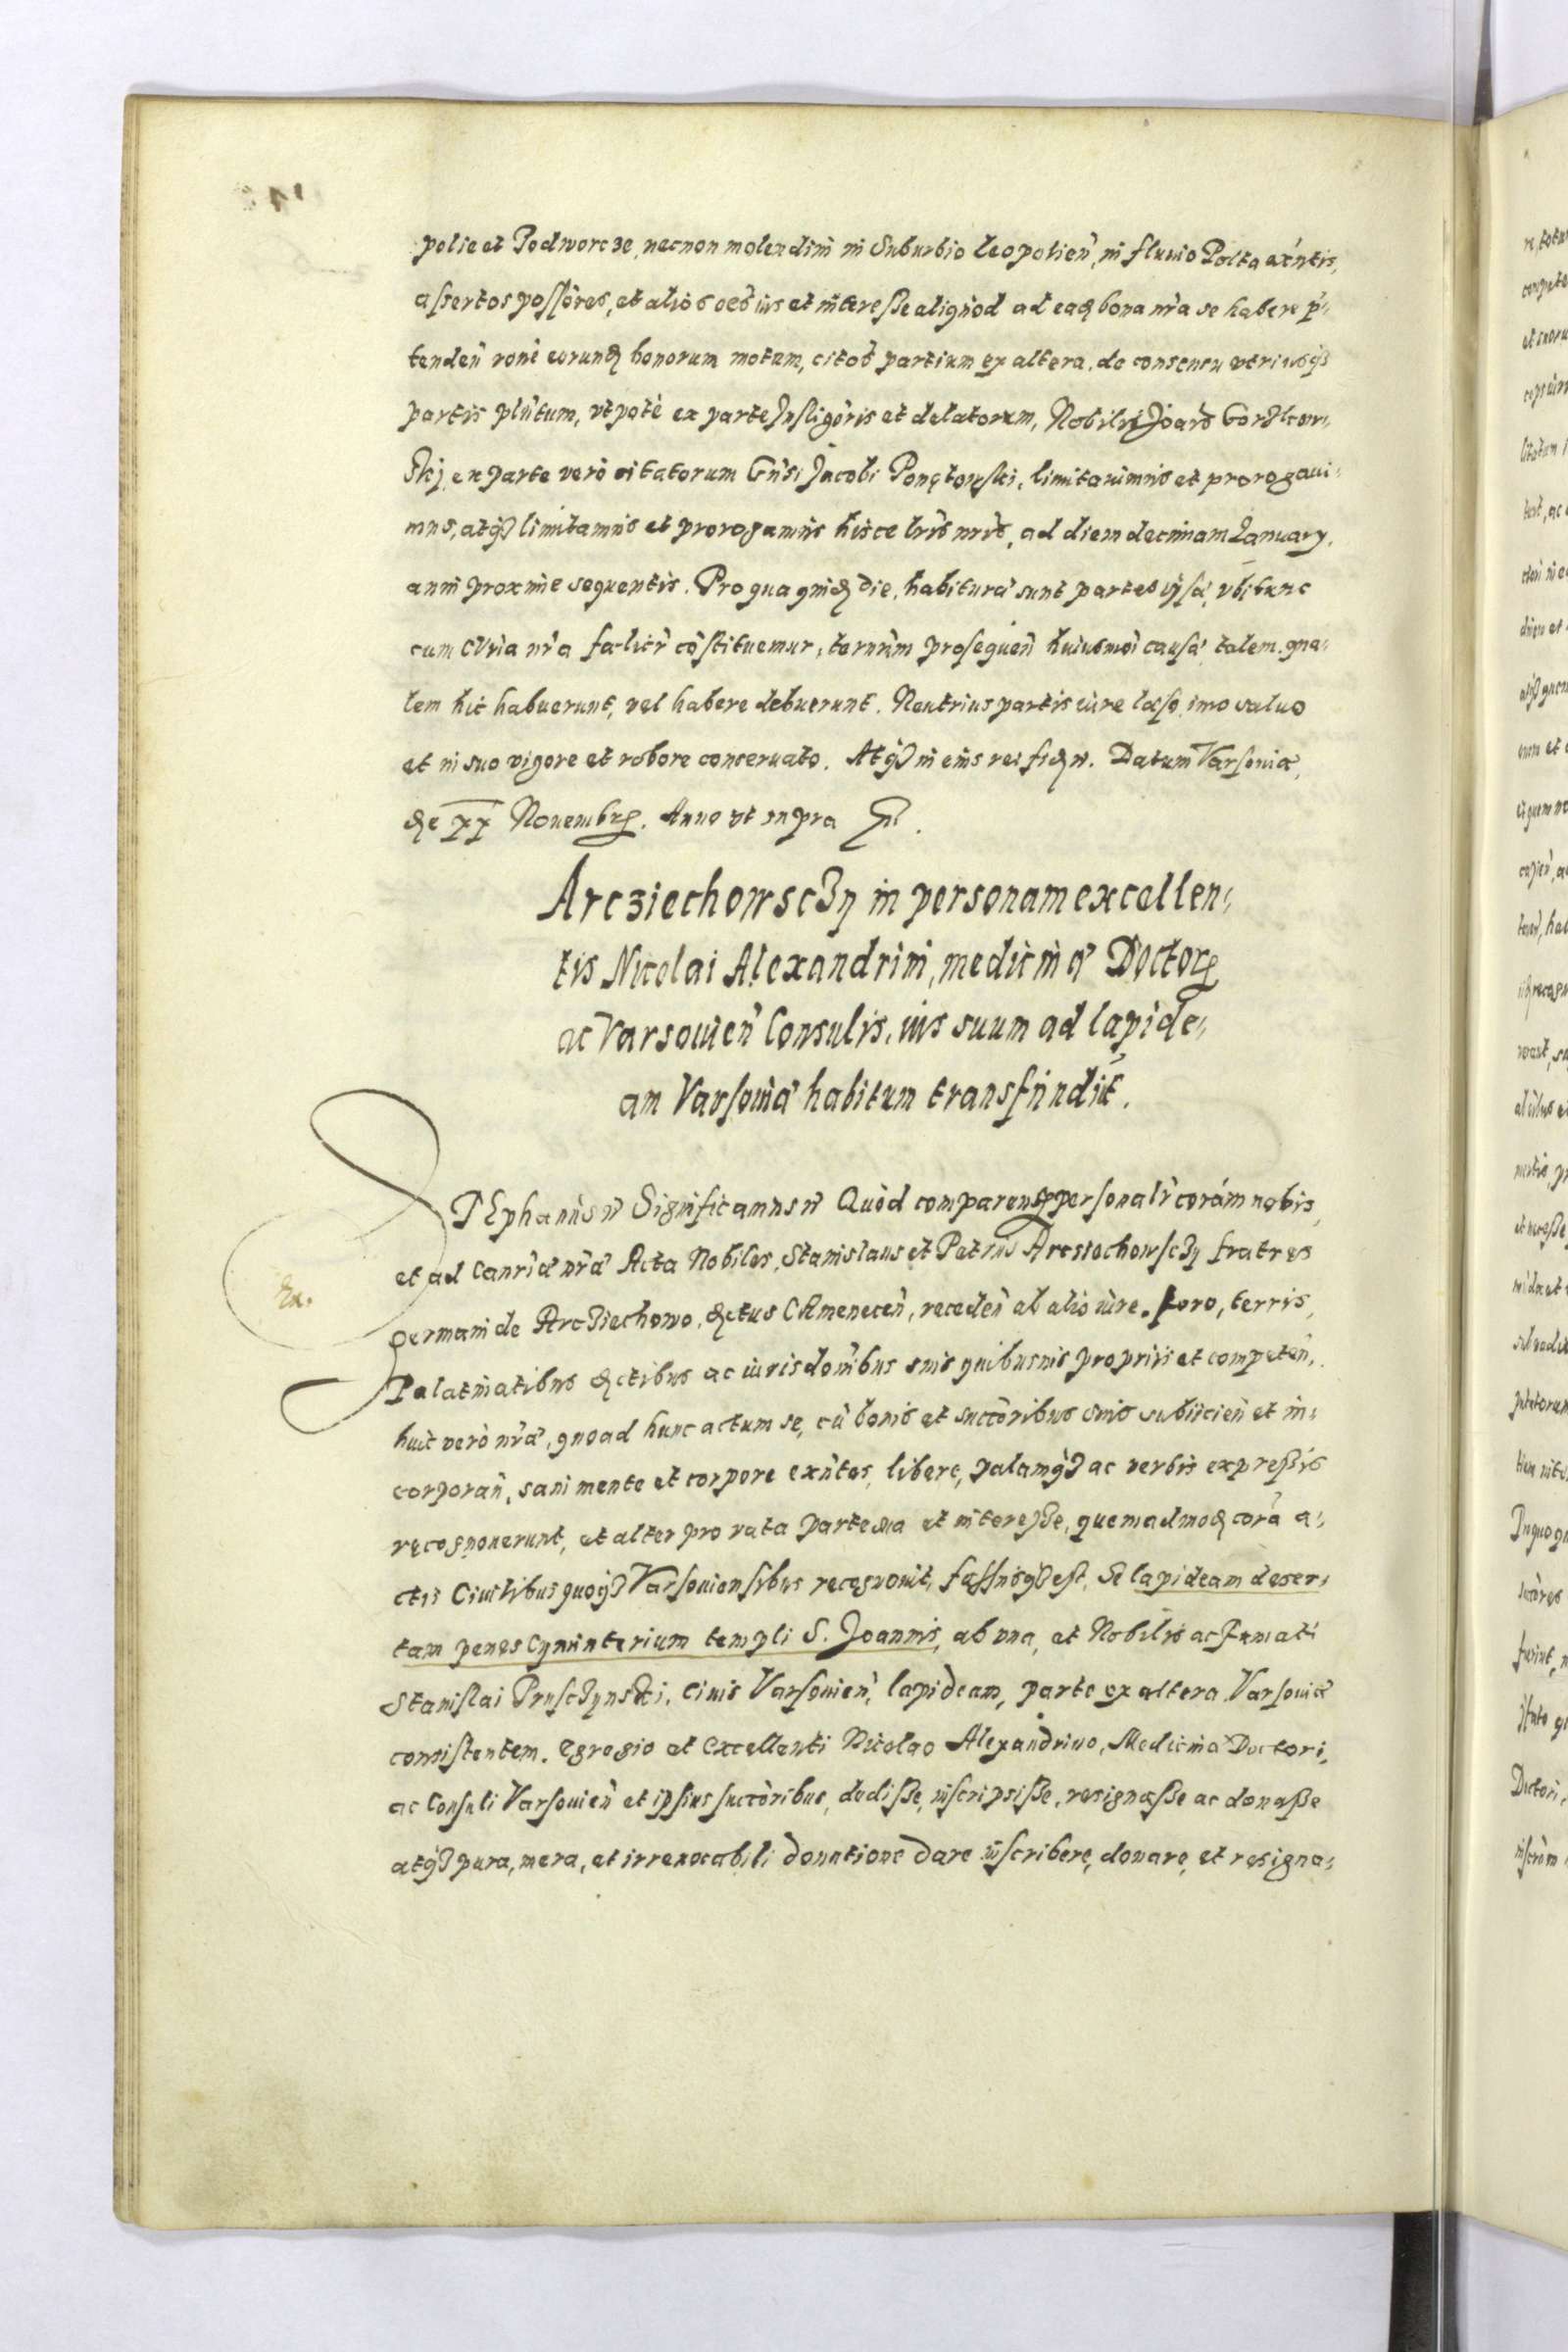 polie et Podworcze, necnon molendini in Suburbio Leopolien̄, in fluvio Polta ex̄ntis,
assertos possōres, et alios oēs ius et interesse aliquod ad eadē bona nr̄a se habere p̄-
tenden̄ ronē eorundē bonorum motam, citat̄ partium ex altera. de consensu utriusq̃
partis pn̄tum, utpote ex parte Instigōris et delatorum, Nobilis Joan̄s
ski, ex parte vero citatorum Gn̄si Jacobi Ponętowski, limitavimus et prorogavi-
mus, atq̃ limitamus et prorogamus hisce lr̄is nr̄is, ad diem decimam January.
anni proxime sequentis. Pro qua quidē die, habituræ sunt partes ipsæ, ubi tunc
cum Curia nr̄a fœlicr̄ cōstituemur, terminum prosequen̄ huiusmōi causæ talem. qua-
lem hic habuerunt, vel habere debuerunt. Neutrius partis iure læso, imo salvo
et in suo vigore et robore conservato. Atq̃ in eius rei fidē n̄. Datum Varsoviæ,
die xx Novembr̃. Anno ut supra
Arcziechowsczy in personam excellen-
tis Nicolai Alexandrini, medicinæ Doctor̃
ac Varsovien̄ Consulis, ius suum ad lapide-
am Varsoviæ habitum transfundūt.
STEphanus n̄ Significamus n̄ Quòd comparentes personalr̄ coràm nobis,
et ad Canriæ nr̄æ Acta Nobiles, Stanislaus et Petrus Arcziechowsczy fratres
germani de Arcziechowo, dictus CAmenecen̄, receden̄ ab alio iure. foro, terris,
Palatinatibus dictibus ac iurisdonibus suis quibusuis propriis et competen̄,
huic verò nr̄æ, quoad hunc actum se, cū bonis et succōribus suis subiicien̄ et in-
corporan̄, sani mente et corpore ex̄ntes, libere, palamq̃ ac verbis expressis
recognoverunt, et alter pro rata parte sua et interesse, quemadmodē corā a-
ctis Civilibus quoq̃ Varsoviensibus recognovit, fassusq̃ est, Se lapideam deser-
tam penes Cyminterium templi S. Joannis, ab una, et Nobilis ac Famati
Stanislai Prusczynski, civis Varsovien̄, lapideam, parte ex altera Varsoviæ
consistentem. Egregio et Excellenti Nicolao Alexandrino, Medicinæ Doctori,
ac Consuli Varsovien̄ et ipsius succōribus, dedisse, inscripsisse, resignasse ac donasse
atq̃ pura, mera, et irrevocabili donatione dare inscribere, donare, et resigna-